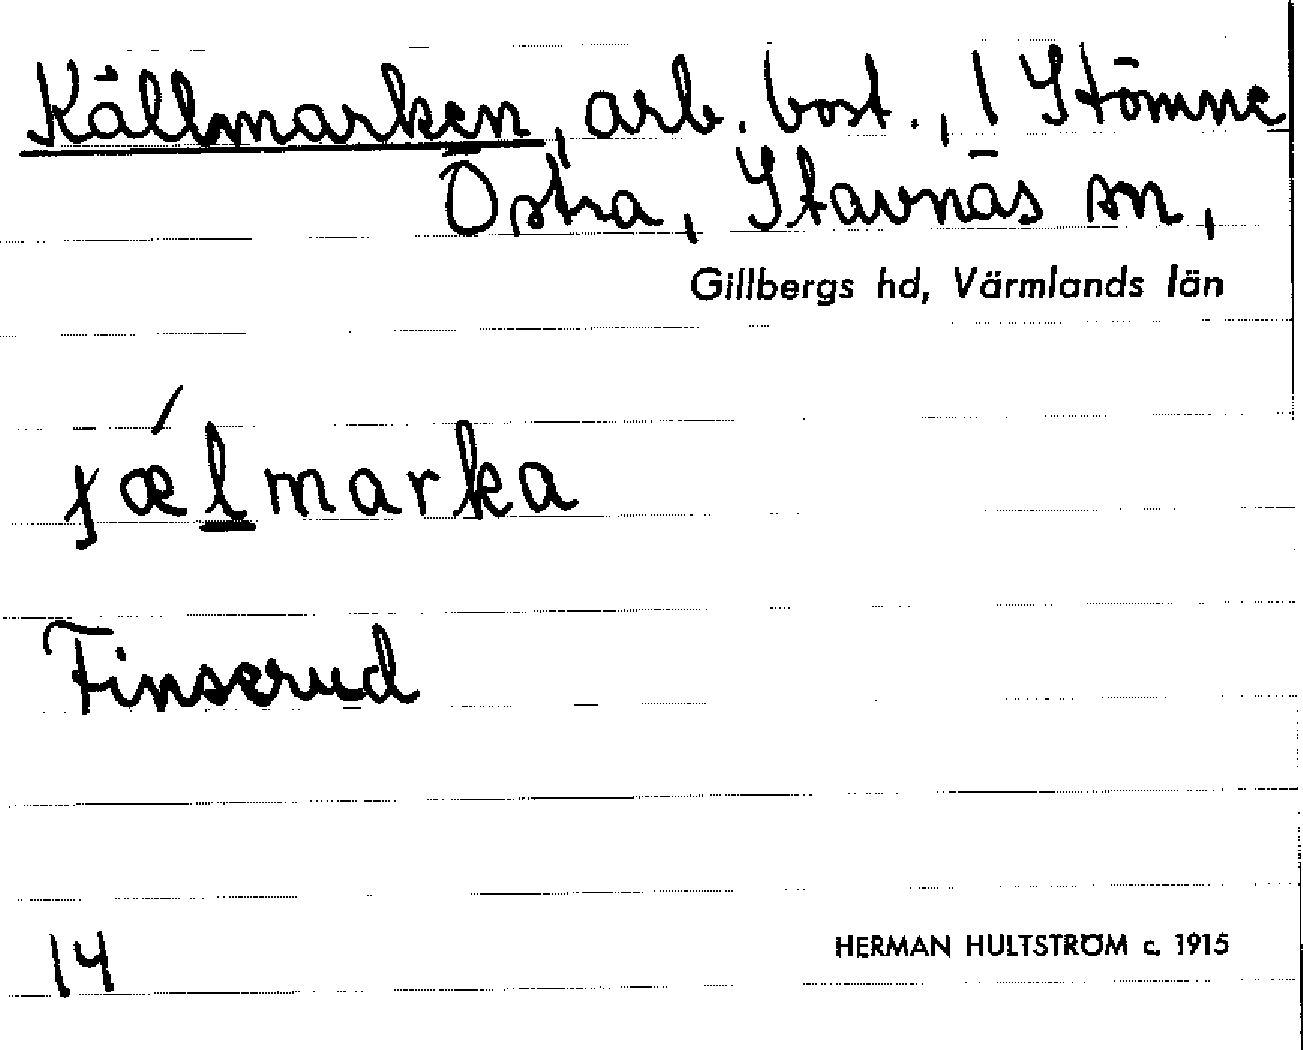 Källmarken, arb. bost., 1 Stömne
Östra, Stavnäs sn,
Gillbergs hd, Värmlands län
ɟǽlmarka
Finserud
14
HERMAN HULTSTRÖM c. 1915